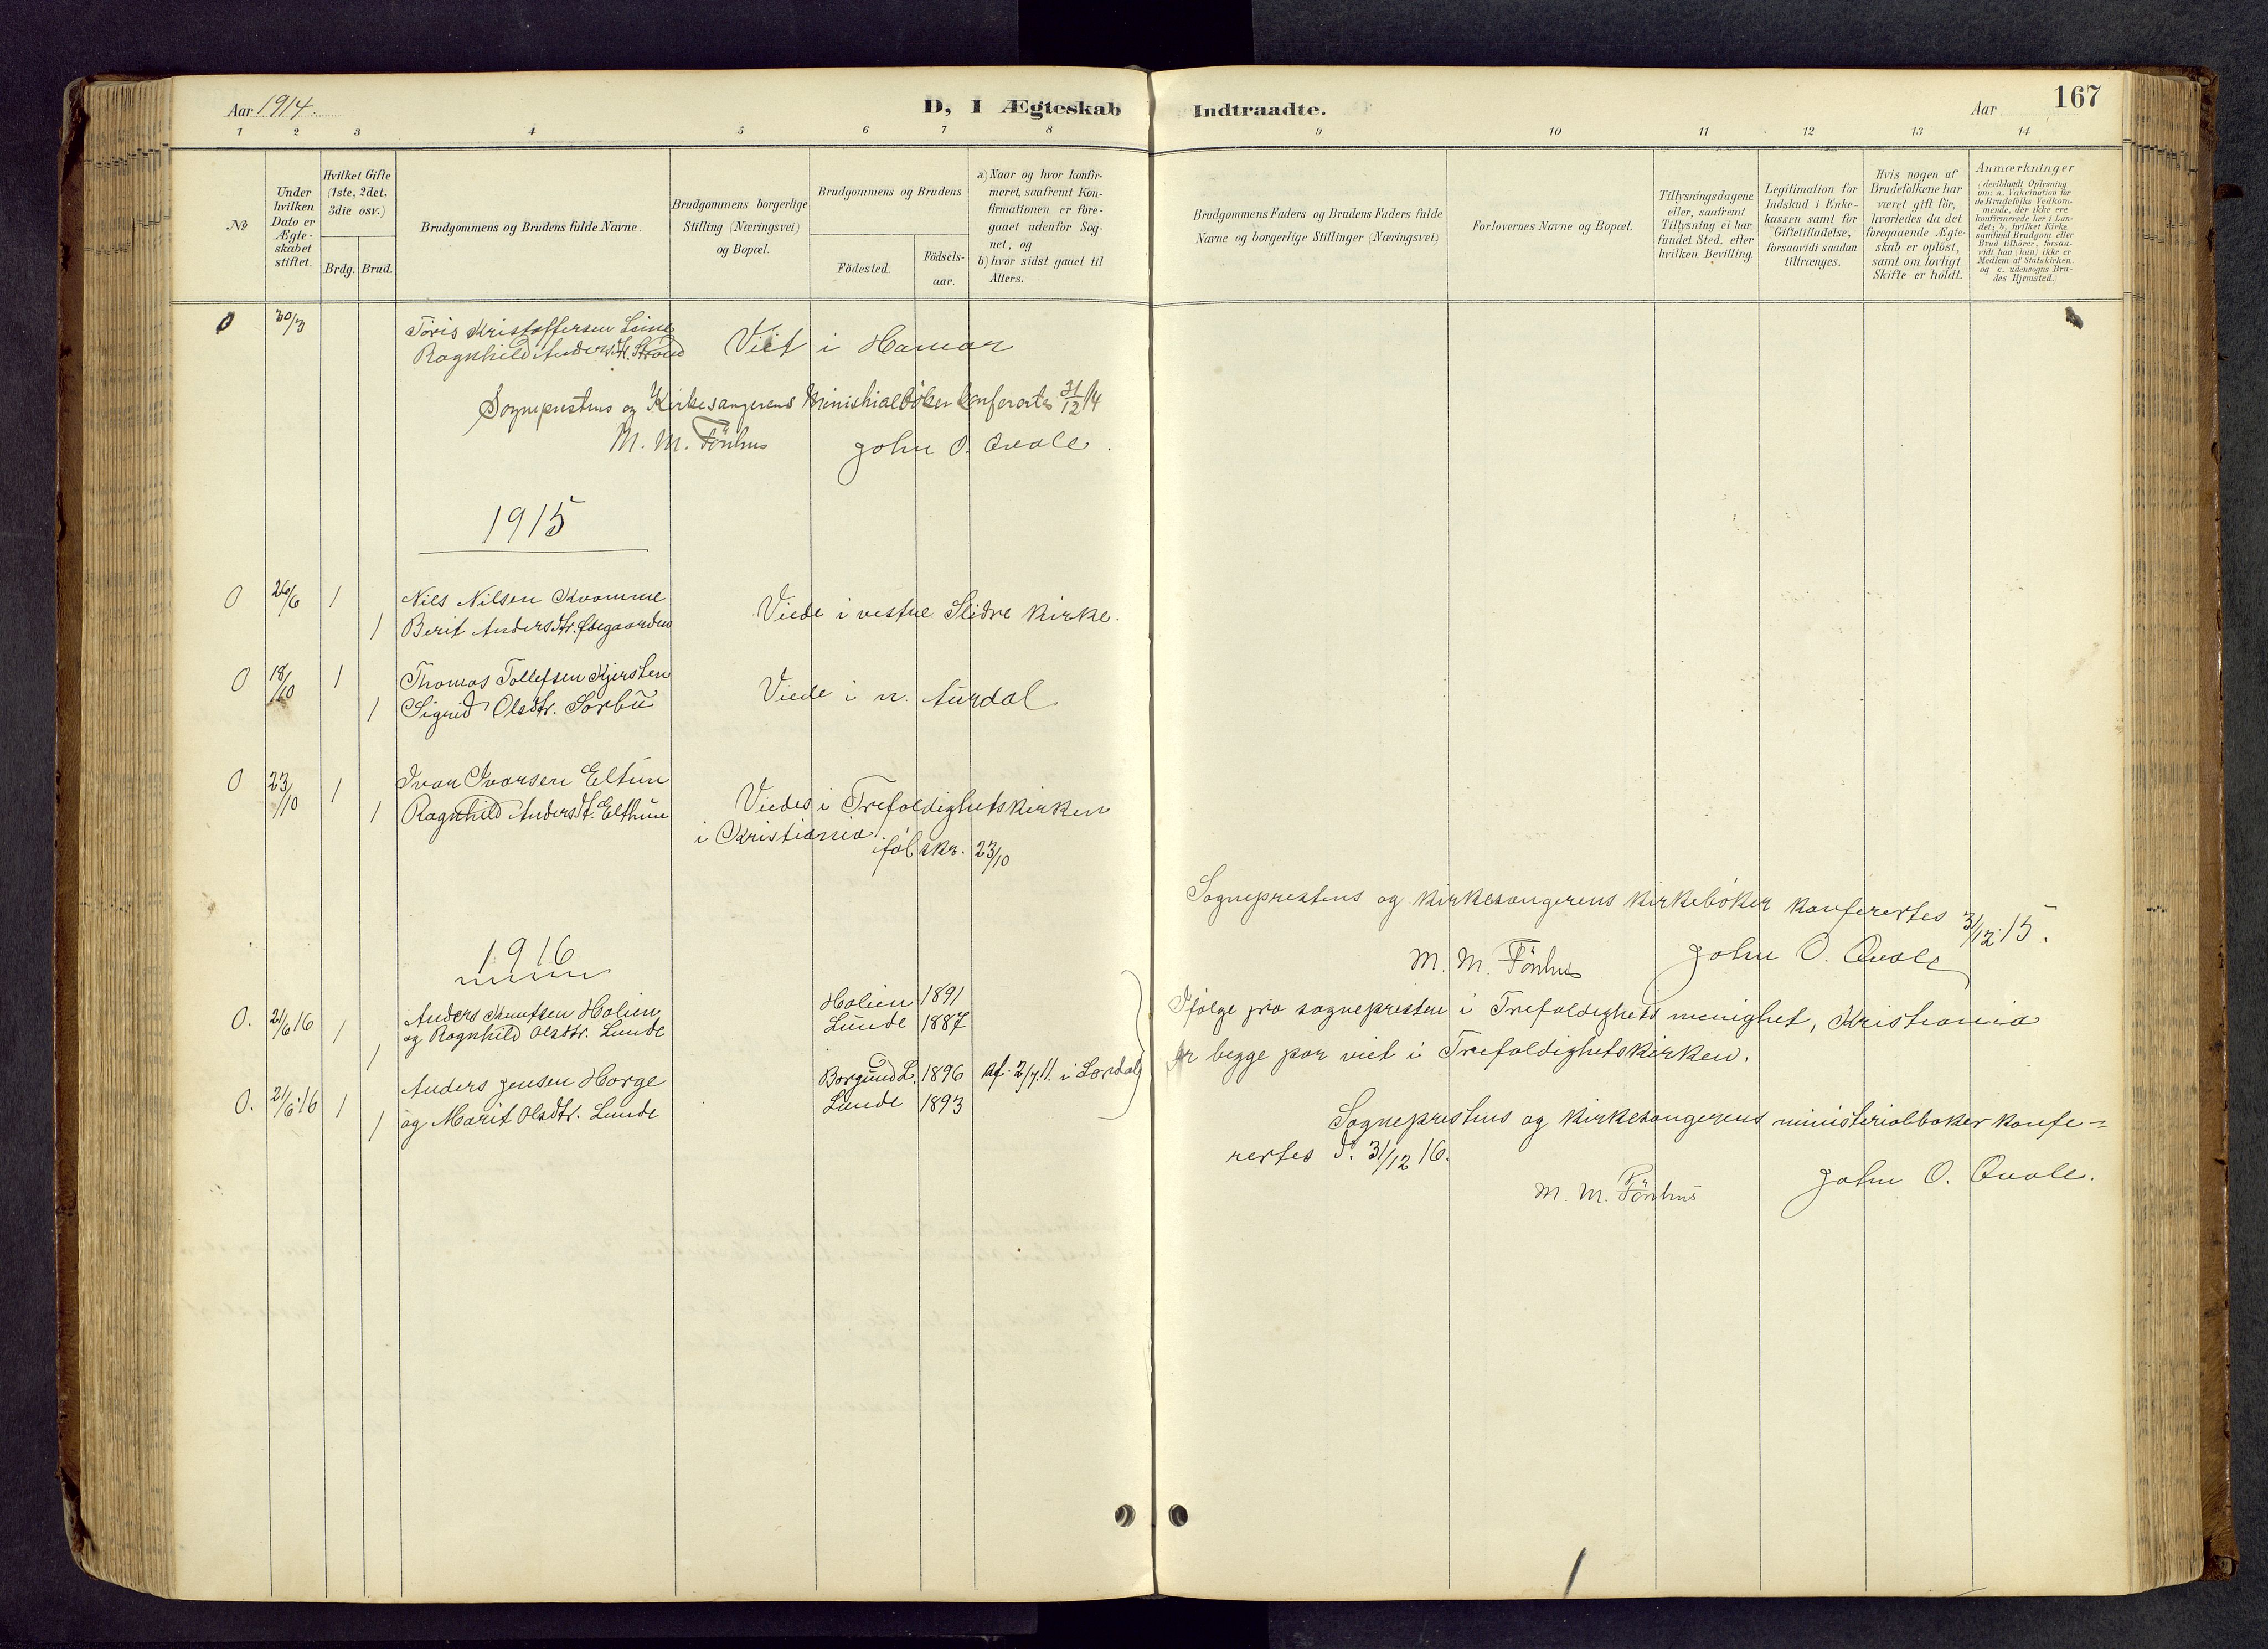 Aar 1914.
D, I Ægteskab Indtraadte.
Aar
167
1 2 3 4 5 6 7 8 9 10 11 12 13 14
No
Under hvilken Dato er Ægte-skabet stiftet.
Hvilket Gifte (1ste, 2det, 3die osv.)
Brdg. Brud.
Brudgommens og Brudens fulde Navne.
Brudgommens borgerlige Stilling (Næringsvei) og Bopæl.
Brudgommens og Brudens
Födested.
Födsels-aar.
a) Naar og hvor konfir-meret, saafremt Kon-firmationen er fore-gaaet udenfor Sog-net, og
b) hvor sidst gaaet til Alters.
Brudgommens Faders og Brudens Faders fulde Navne og borgerlige Stillinger (Næringsvei)
Forlovernes Navne og Bopæl.
Tillysningsdagene eller, saafremt Tillysning ei har fundet Sted, efter hvilken Bevilling.
Legitimation for Indskud i Enke-kassen samt for Giftetilladelse, forsaavidt saadan tiltrænges.
Hvis nogen af Brudefolkene har været gift för, hvorledes da det foregaaende Ægte-skab er oplöst, samt om lovligt Skifte er holdt.
Anmærkninger (deriblandt Oplysning om: a. Vakcination for de Brudefolks Vedkom-mende, der ikke ere konfirmerede her i Lan-det; b. hvilket Kirke-samfund Brudgom eller Brud tilhörer, forsaa-vidt han (hun) ikke er Medlem af Statskirken, og c. udensogns Bru-des Hjemsted.)
0 30/3 Töris Kristoffersen Leine
Ragnhild Andersdtr. Strand Viet i Hamar
Sogneprestens og Kirkesangerens Ministrialböker konferertes 31/12 14
M. M. Tönhus John O. Qvale.
1915
0 26/6 1 Nils Nilsen Kvamme
1 Berit Andersdtr. Ödegaarden Viede i vestre Slidre kirke.
0 18/10 1 Thomas Tollefsen Kjersten
1 Sigrid Olsdtr. Sörbu Viede i n. Aurdal
0 23/10 1 Ivar Ivarsen Eltun
1 Ragnhild Andersdt. Elthun Viedes i Trefoldighetskirken
i Kristiania iföl skr. 23/10
Sogneprestens og kirkesangerens kirkeböker konferertes 31/12 15.
M. M. Tönhus John O. Qvale
1916
0. 21/6 16 1 Anders Knutsen Holien Holien 1891
1 og Ragnhild Olsdtr. Lunde Lunde 1887
Ifölge fra sognepresten i Trefoldighets menighet, Kristiania
er begge par viet i Trefoldighetskirken.
0. 21/6 16 1 Anders Jensen Horge Borgund L. 1896 Af. 2/7.11. i Lærdal
1 og Marit Olsdtr. Lunde Lunde 1893
Sogneprestens og kirkesangerens ministerialböker konfe=
rertes d. 31/12 16.
M. M. Tönhus John O. Qvale.